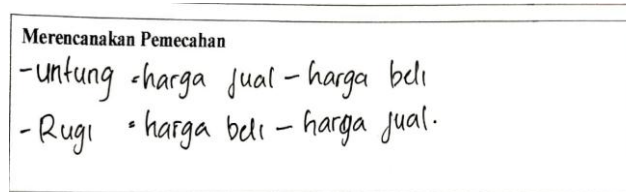 Merencanakan Pemecahan
-untung = harga jual - harga beli
- Rugi = harga beli - harga jual.